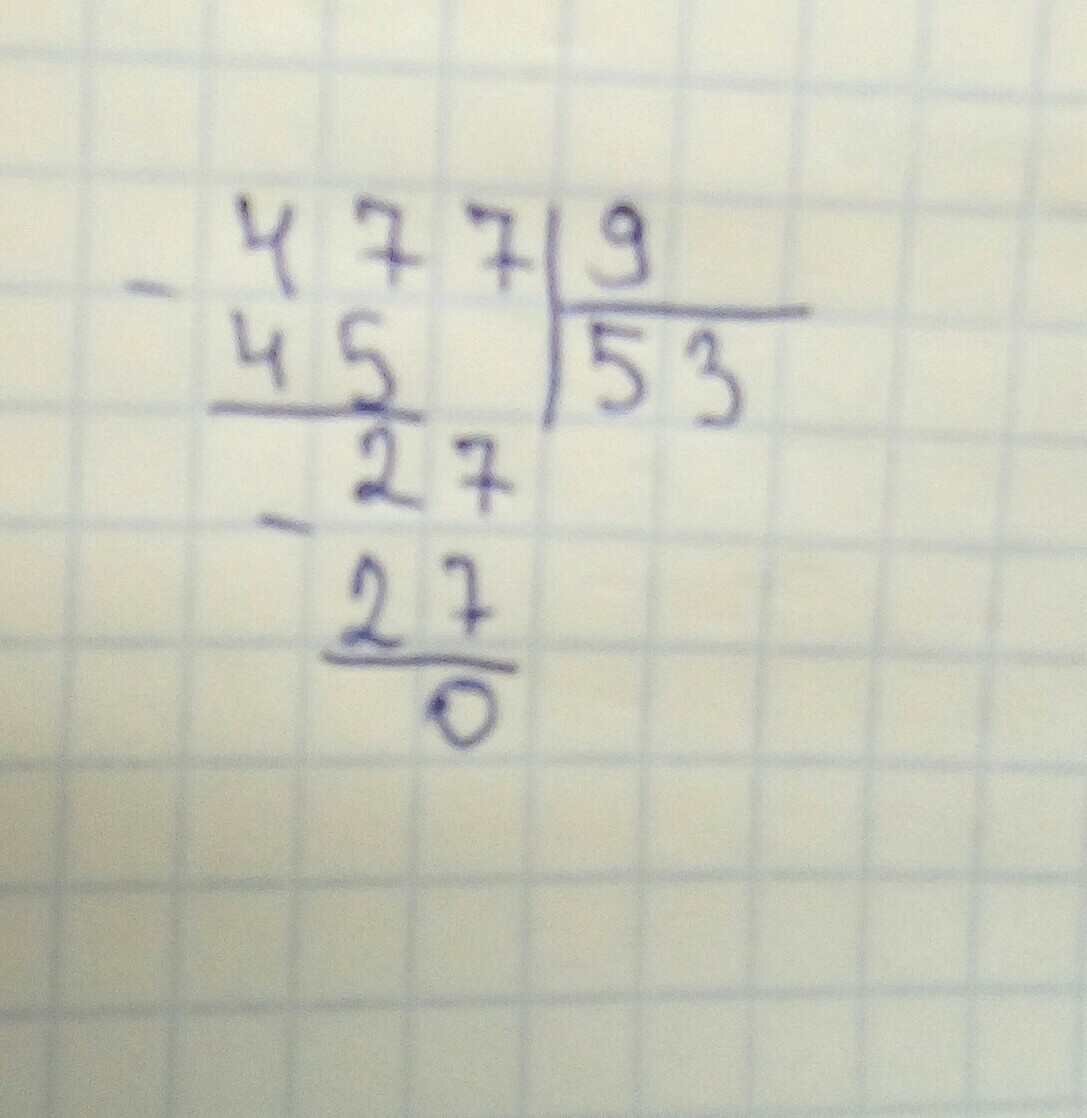 - 477 | 9
45 | 53
- 27
27
0